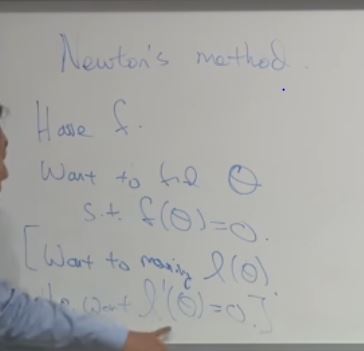 Newton's method.
Have f.
Want to find θ
s.t. f(θ)=0.
[Want to l(θ)
want l'(θ)=0.]